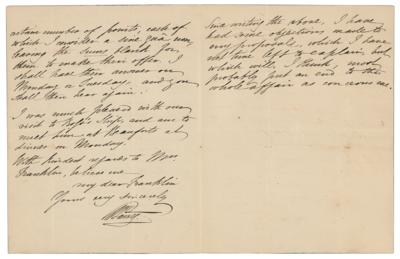 certain number of points, each of
which I insisted a sine quâ non,
leaving the sums blank for
them to make their offer. I
shall have their answer on
Monday or Tuesday, and you
shall then hear again.
I was much pleased with my
visit to
meet him at Beauforts at
dinner on Monday.
With kindest regards to Mrs
Franklin, believe me
my dear Franklin
Yours very sincerely
WParry
Since writing the above, I have
had some objections made to
my proposals, which I have
not time left to explain, but
which will, I think, most
probably put an end to the
whole affair as concerns me.